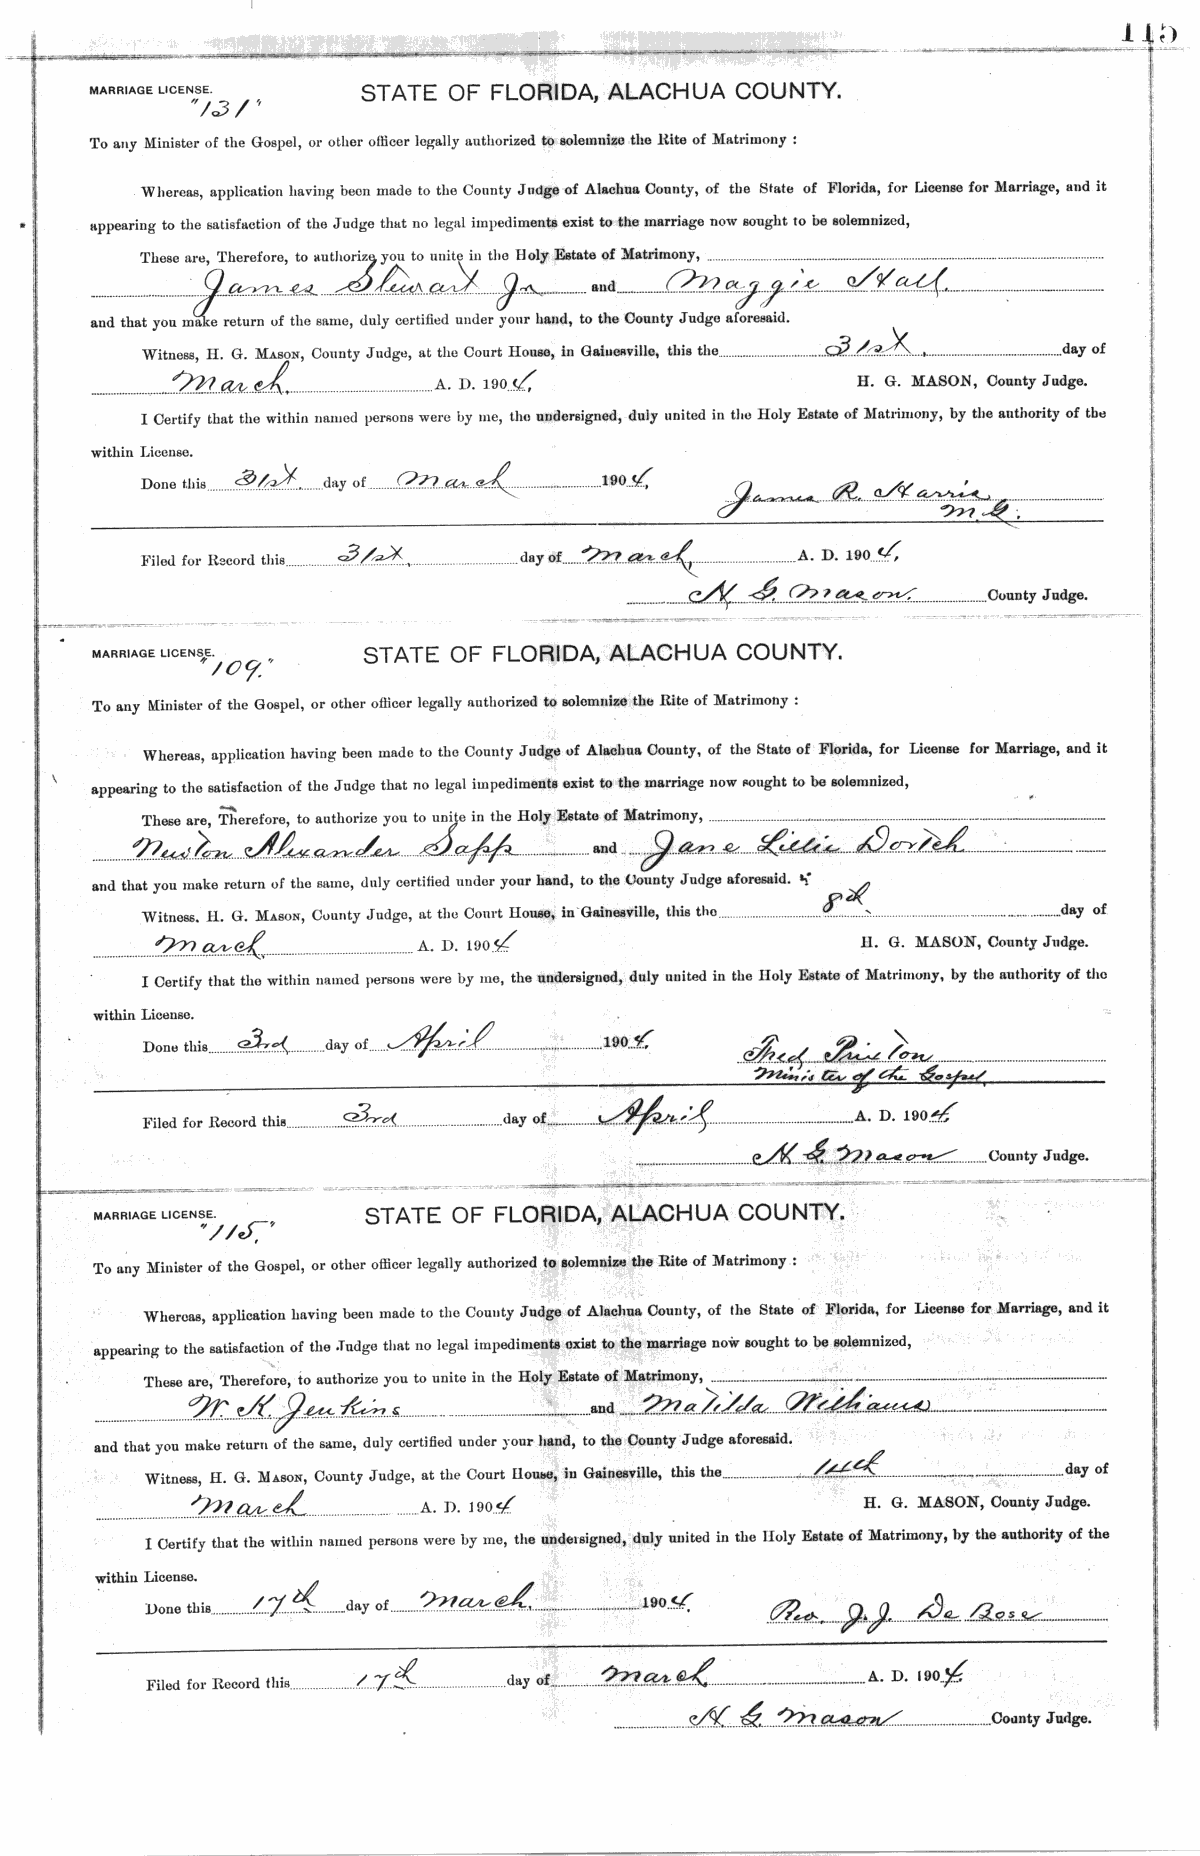 115
MARRIAGE LICENSE. STATE OF FLORIDA, ALACHUA COUNTY.
"131"
To any Minister of the Gospel, or other officer legally authorized to solemnize the Rite of Matrimony :
Whereas, application having been made to the County Judge of Alachua County, of the State of Florida, for License for Marriage, and it
appearing to the satisfaction of the Judge that no legal impediments exist to the marriage now sought to be solemnized,
These are, Therefore, to authorize you to unite in the Holy Estate of Matrimony,
James Stewart Jr and Maggie Hall.
and that you make return of the same, duly certified under your hand, to the County Judge aforesaid.
Witness, H. G. MASON, County Judge, at the Court House, in Gainesville, this the 31st. day of
March. A. D. 1904. H. G. MASON, County Judge.
I Certify that the within named persons were by me, the undersigned, duly united in the Holy Estate of Matrimony, by the authority of the
within License.
Done this 31st. day of March 1904.
James R. Harris
M.G.
Filed for Record this 31st. day of March, A. D. 1904.
H. G. Mason. County Judge.
MARRIAGE LICENSE. STATE OF FLORIDA, ALACHUA COUNTY.
"109."
To any Minister of the Gospel, or other officer legally authorized to solemnize the Rite of Matrimony :
Whereas, application having been made to the County Judge of Alachua County, of the State of Florida, for License for Marriage, and it
appearing to the satisfaction of the Judge that no legal impediments exist to the marriage now sought to be solemnized,
These are, Therefore, to authorize you to unite in the Holy Estate of Matrimony,
Newton Alexander Sapp and Jane Lillie Dortch
and that you make return of the same, duly certified under your hand, to the County Judge aforesaid.
Witness, H. G. MASON, County Judge, at the Court House, in Gainesville, this the 8th. day of
March. A. D. 1904 H. G. MASON, County Judge.
I Certify that the within named persons were by me, the undersigned, duly united in the Holy Estate of Matrimony, by the authority of the
within License.
Done this 3rd day of April 1904.
Fred
Minister of the Gospel.
Filed for Record this 3rd day of April A. D. 1904.
H. G. Mason County Judge.
MARRIAGE LICENSE. STATE OF FLORIDA, ALACHUA COUNTY.
"115."
To any Minister of the Gospel, or other officer legally authorized to solemnize the Rite of Matrimony :
Whereas, application having been made to the County Judge of Alachua County, of the State of Florida, for License for Marriage, and it
appearing to the satisfaction of the Judge that no legal impediments exist to the marriage now sought to be solemnized,
These are, Therefore, to authorize you to unite in the Holy Estate of Matrimony,
W. K. Jenkins and Matilda Williams
and that you make return of the same, duly certified under your hand, to the County Judge aforesaid.
Witness, H. G. MASON, County Judge, at the Court House, in Gainesville, this the 14th day of
March A. D. 1904 H. G. MASON, County Judge.
I Certify that the within named persons were by me, the undersigned, duly united in the Holy Estate of Matrimony, by the authority of the
within License.
Done this 17th day of March. 1904.
Rev. J. J. De Bose
Filed for Record this 17th day of March. A. D. 1904.
H. G. Mason County Judge.